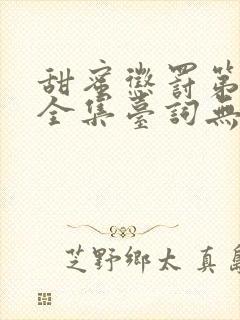 甜蜜懲罰第
全集臺詞無
芝野鄉太 真島